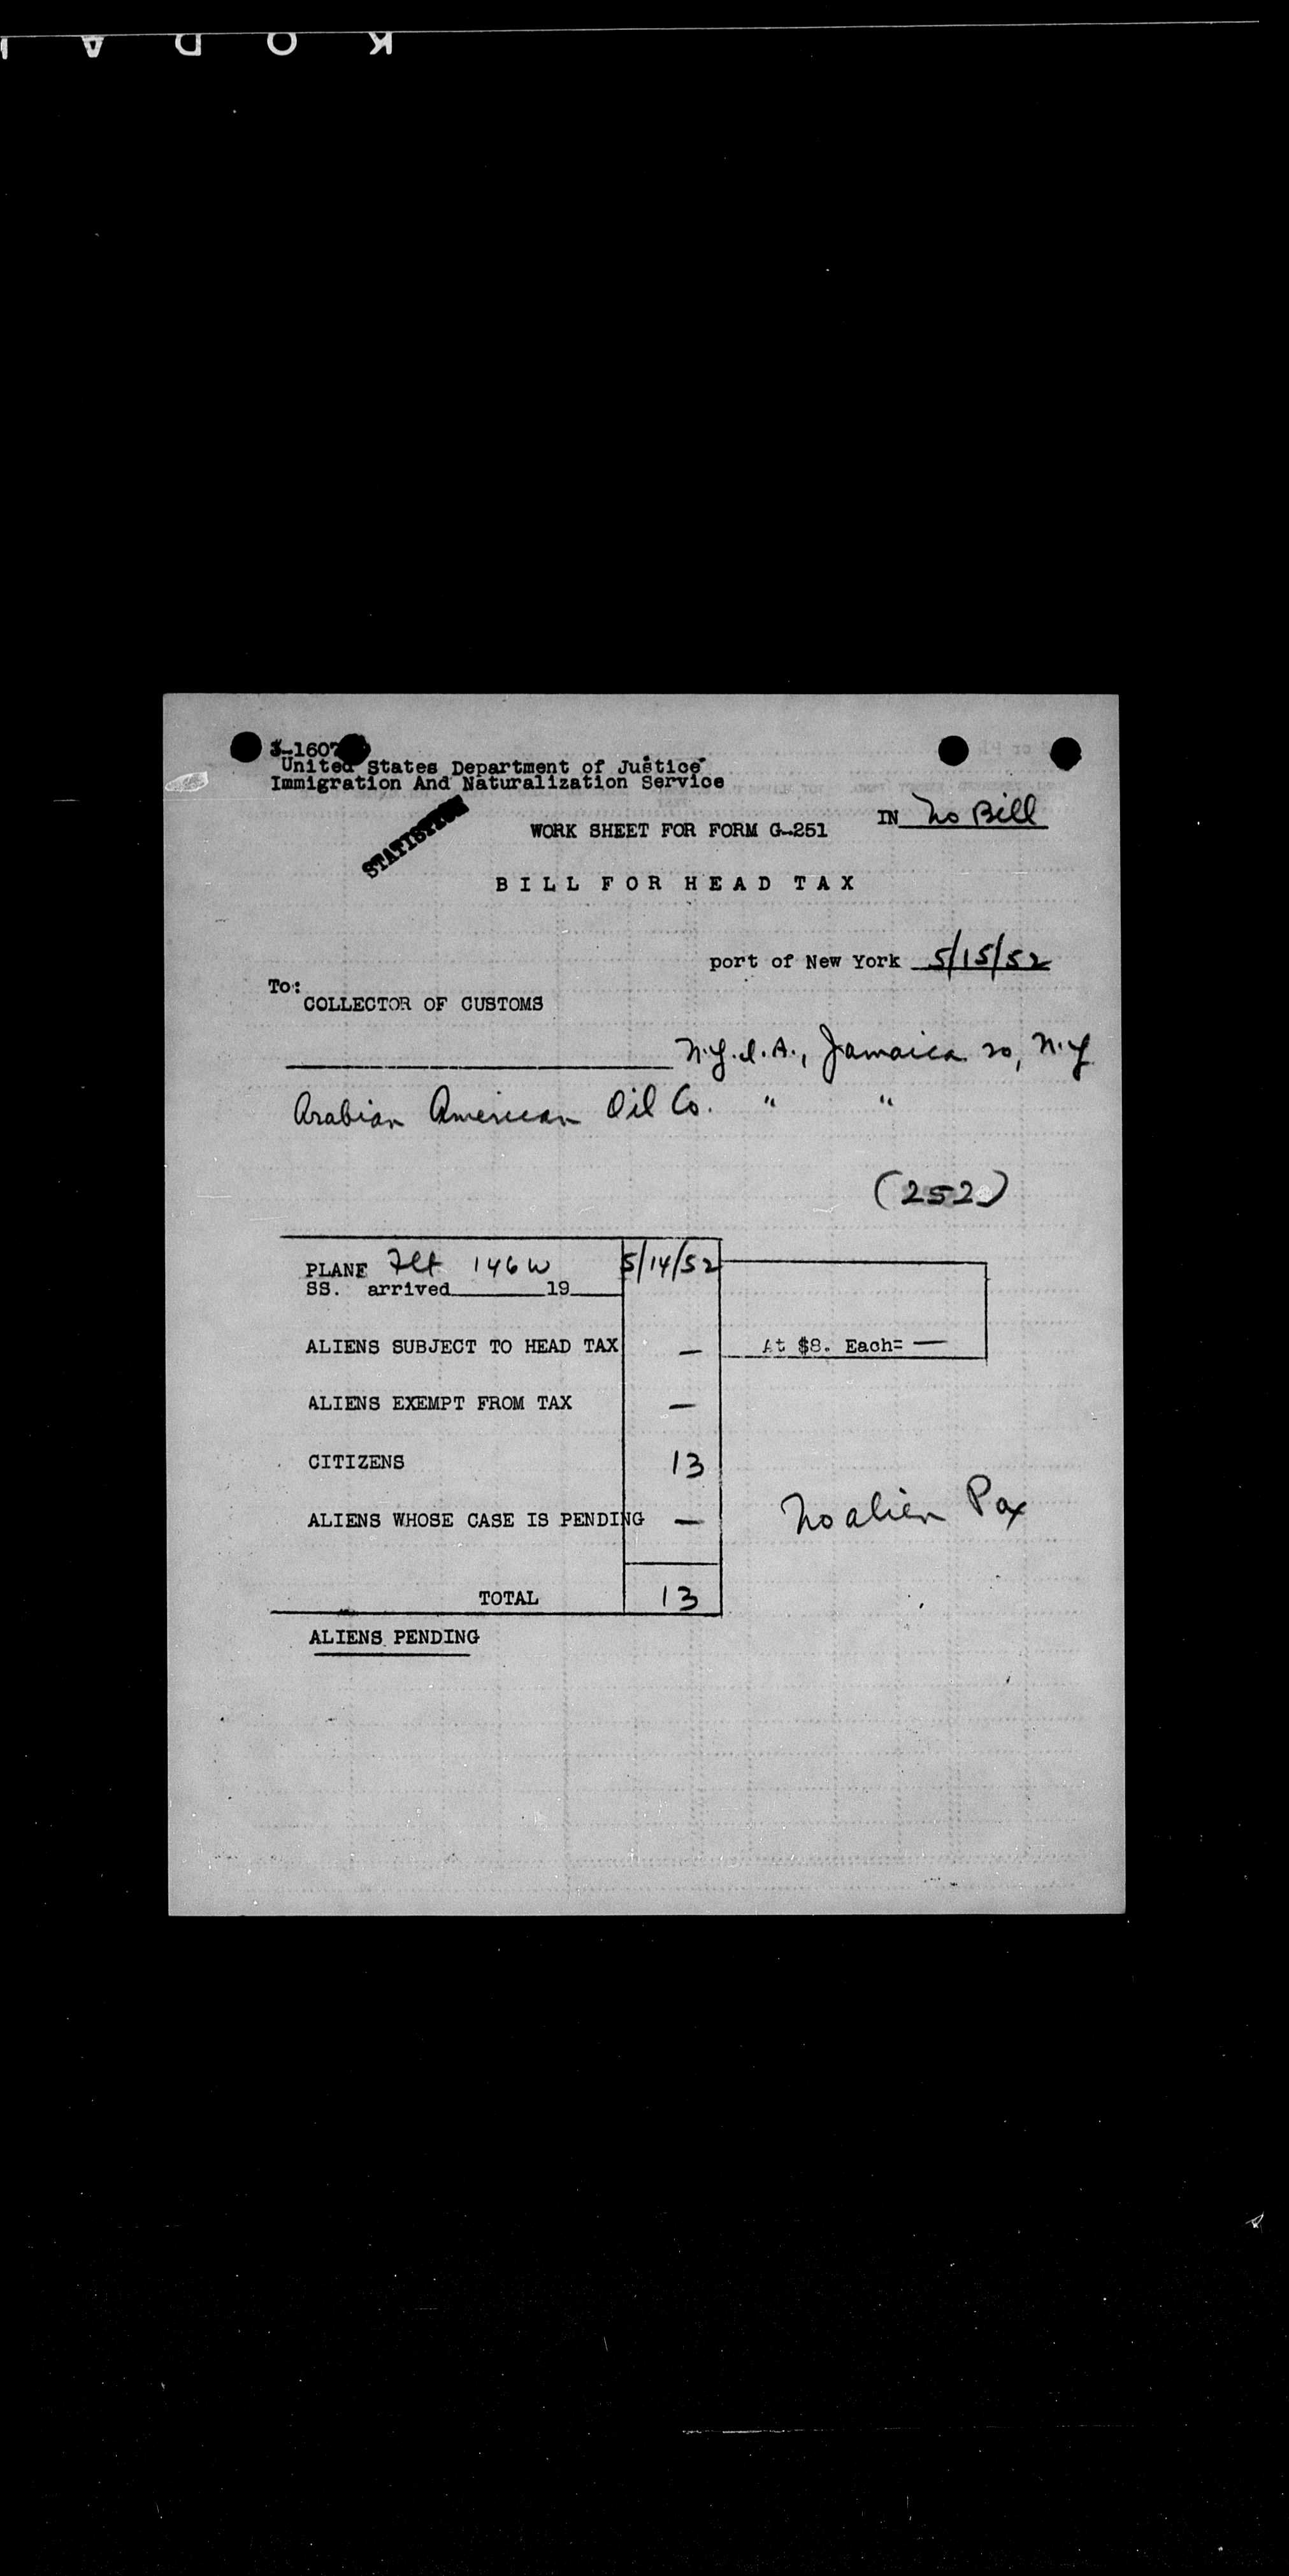 KODA
3-1607
United States Department of Justice
Immigration And Naturalization Service
IN No Bill
STATISTICS
WORK SHEET FOR FORM G-251
BILL FOR HEAD TAX
port of New York 5/15/52
To:
COLLECTOR OF CUSTOMS
N.Y.I.A., Jamaica 20, N.Y
Arabian American Oil Co. " "
(252)
PLANE Flt 146W 5/14/52
SS. arrived 19
ALIENS SUBJECT TO HEAD TAX — At $8. Each= —
ALIENS EXEMPT FROM TAX —
CITIZENS 13
ALIENS WHOSE CASE IS PENDING —
No alien Pax
TOTAL 13
ALIENS PENDING